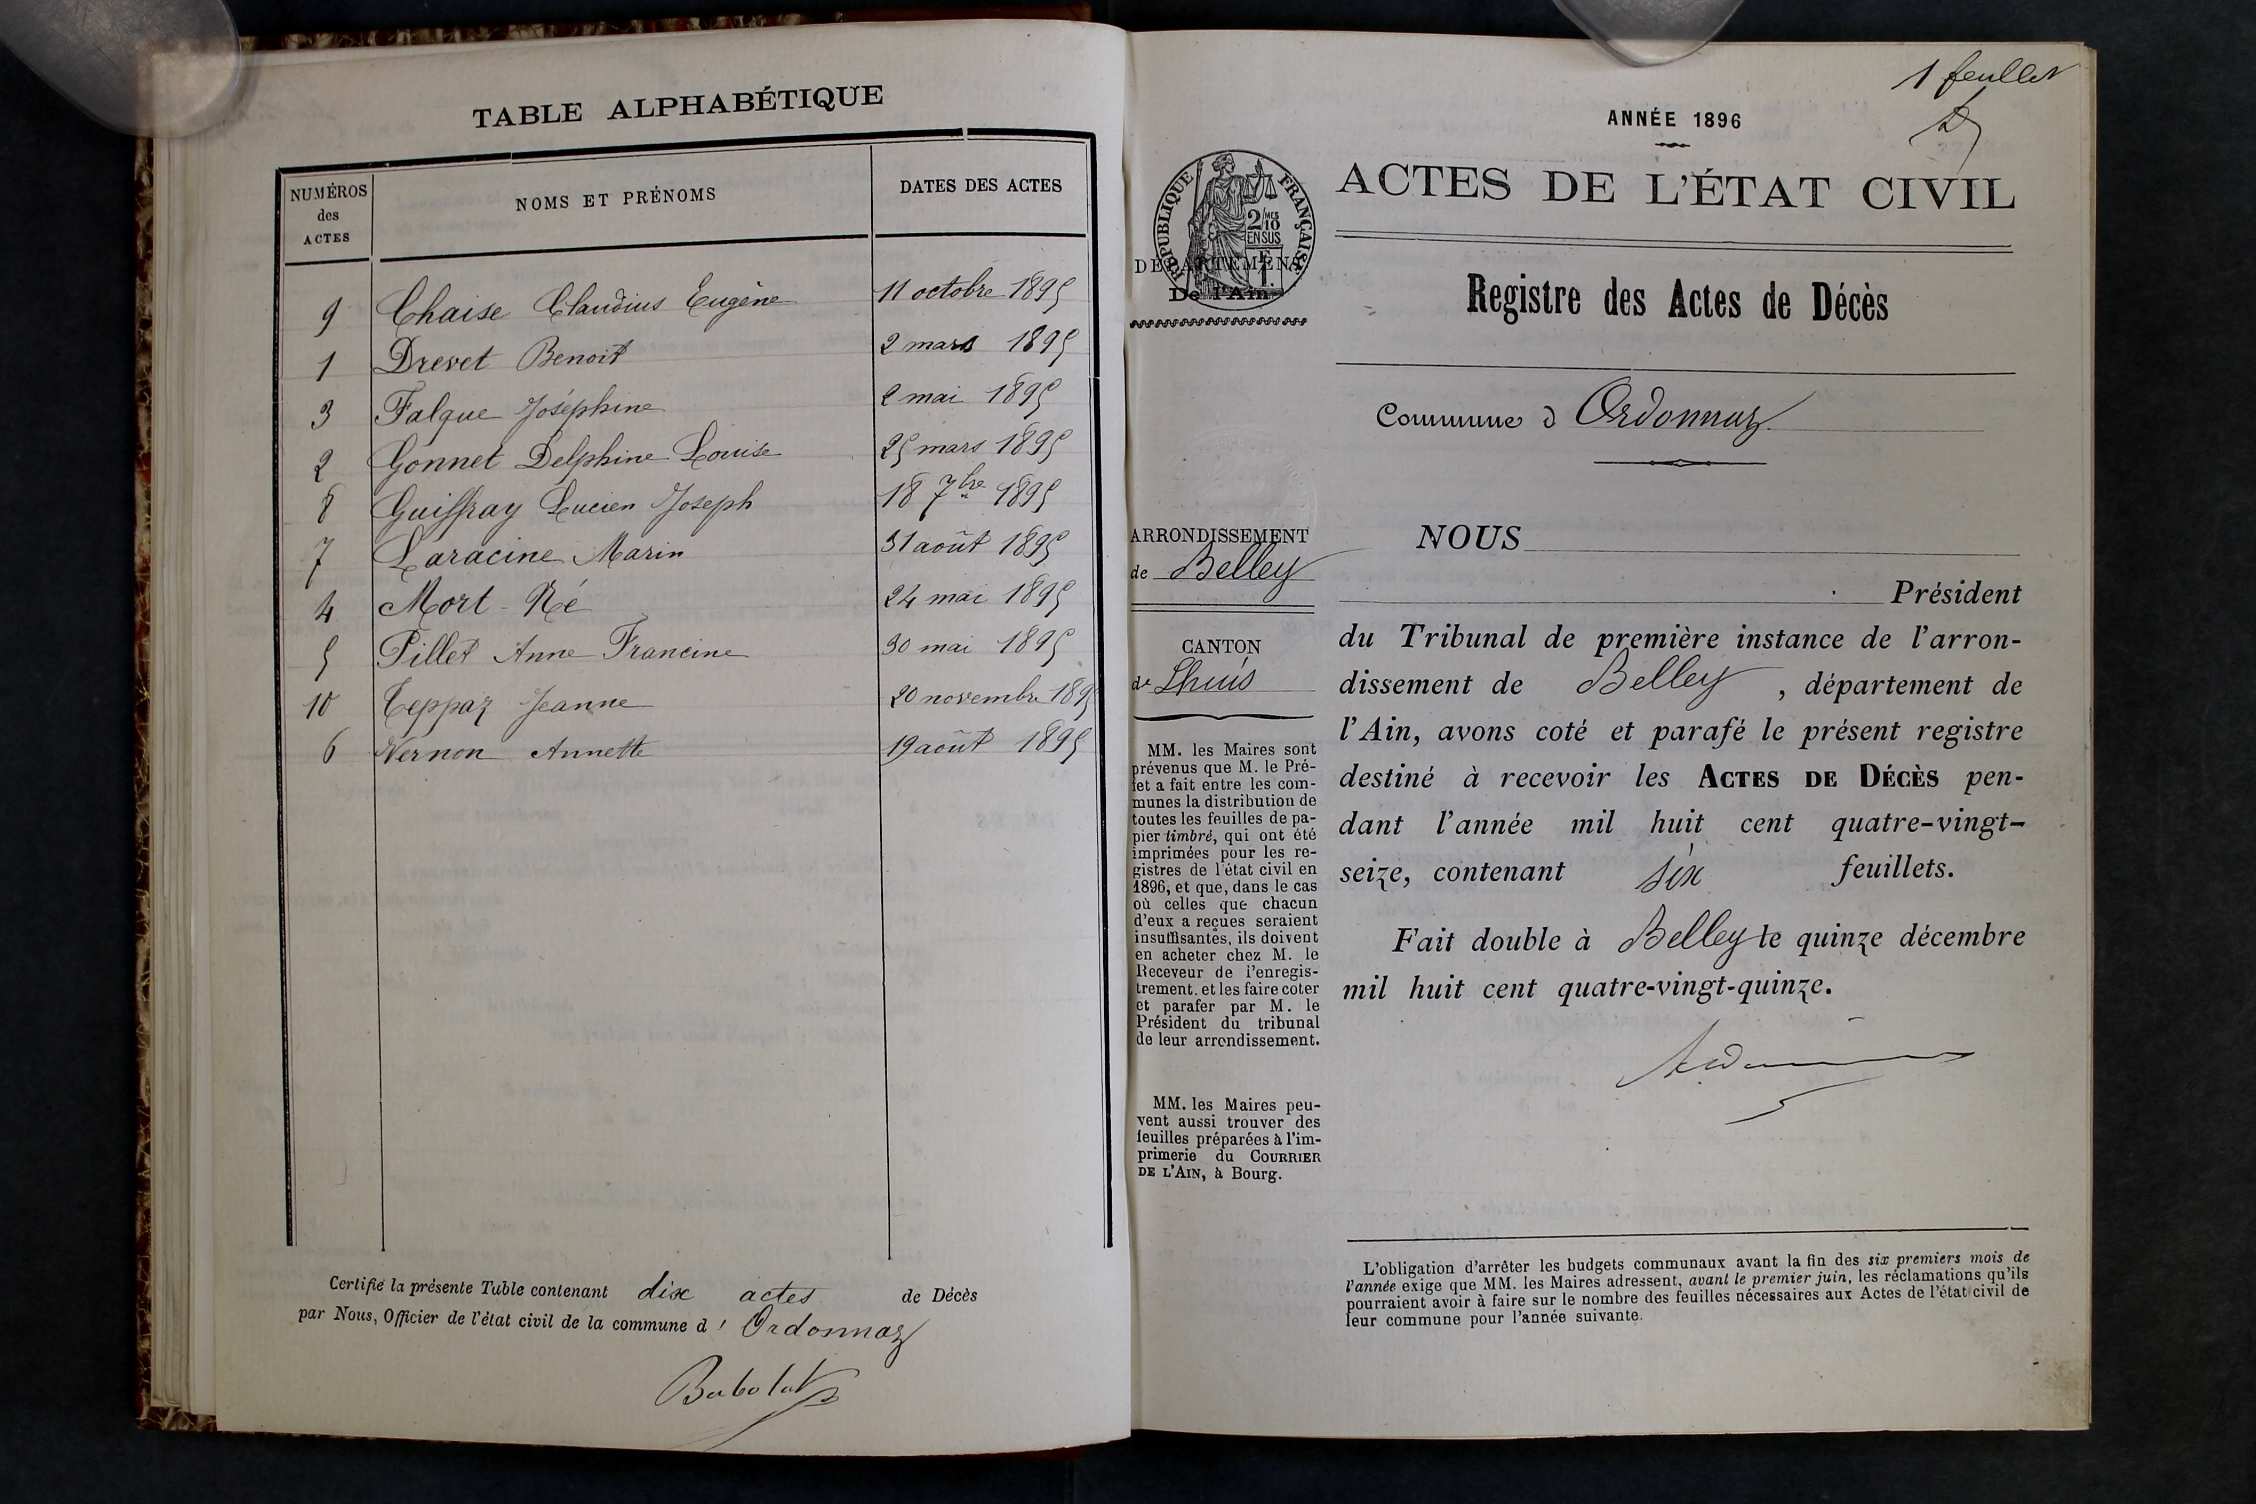 TABLE ALPHABÉTIQUE
NUMÉROS
des
ACTES
NOMS ET PRÉNOMS
DATES DES ACTES
9 Chaise Claudius Eugène 11 octobre 1895
1 Drevet Benoit 2 mars 1895
3 Falque Joséphine 2 mai 1895
2 Gonnet Delphine Louise 25 mars 1895
8 Guiffray Lucien Joseph 18 7bre 1895
7 Laracine Marin 31 août 1895
4 Mort-Né 24 mai 1895
5 Pillet Anne Francine 30 mai 1895
10 Teppaz Jeanne 20 novembre 1895
6 Vernon Annette 19 août 1895
Certifié la présente Table contenant dix actes de Décès
par Nous, Officier de l'état civil de la commune d' Ordonnaz
Babolat
1 feuillet
ANNÉE 1896
ACTES DE L'ÉTAT CIVIL
RÉPUBLIQUE FRANÇAISE
2/10 MES
EN SUS
DÉPARTEMENT
De l'Ain
Registre des Actes de Décès
Commune d Ordonnaz
ARRONDISSEMENT
de Belley
CANTON
de Lhuis
MM. les Maires sont
prévenus que M. le Pré-
fet a fait entre les com-
munes la distribution de
toutes les feuilles de pa-
pier timbré, qui ont été
imprimées pour les re-
gistres de l'état civil en
1896, et que, dans le cas
où celles que chacun
d'eux a reçues seraient
insuffisantes, ils doivent
en acheter chez M. le
Receveur de l'enregis-
trement, et les faire coter
et parafer par M. le
Président du tribunal
de leur arrondissement.
MM. les Maires peu-
vent aussi trouver des
feuilles préparées à l'im-
primerie du COURRIER
DE L'AIN, à Bourg.
NOUS
Président
du Tribunal de première instance de l'arron-
dissement de Belley, département de
l'Ain, avons coté et parafé le présent registre
destiné à recevoir les ACTES DE DÉCÈS pen-
dant l'année mil huit cent quatre-vingt-
seize, contenant six feuillets.
Fait double à Belley le quinze décembre
mil huit cent quatre-vingt-quinze.
L'obligation d'arrêter les budgets communaux avant la fin des six premiers mois de
l'année exige que MM. les Maires adressent, avant le premier juin, les réclamations qu'ils
pourraient avoir à faire sur le nombre des feuilles nécessaires aux Actes de l'état civil de
leur commune pour l'année suivante.